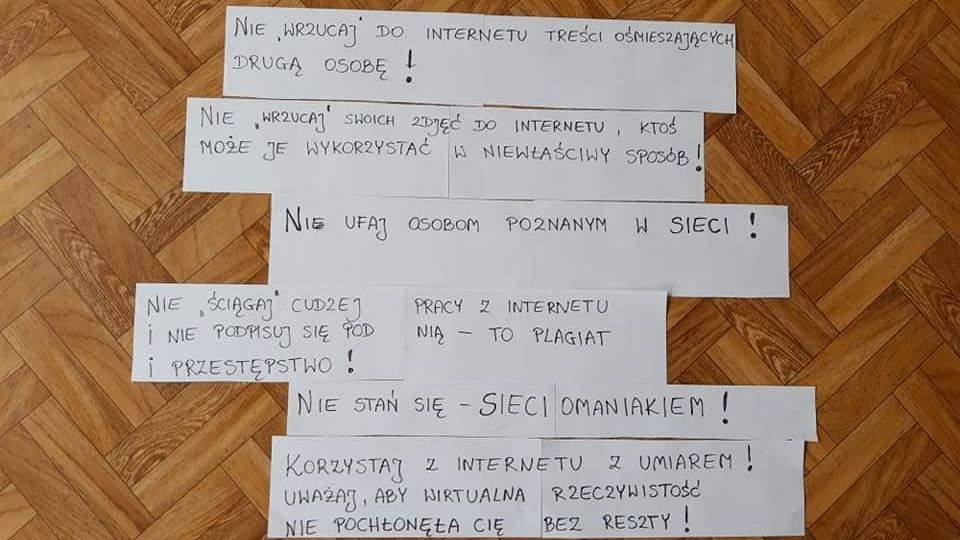 NIE „WRZUCAJ" DO INTERNETU TREŚCI OŚMIESZAJĄCYCH
DRUGĄ OSOBĘ !
NIE „WRZUCAJ" SWOICH ZDJĘĆ DO INTERNETU, KTOŚ
MOŻE JE WYKORZYSTAĆ W NIEWŁAŚCIWY SPOSÓB!
NIE UFAJ OSOBOM POZNANYM W SIECI !
NIE „ŚCIĄGAJ" CUDZEJ PRACY Z INTERNETU
i NIE PODPISUJ SIĘ POD NIĄ – TO PLAGIAT
i PRZESTĘPSTWO !
NIE STAŃ SIĘ – SIECIOMANIAKIEM !
KORZYSTAJ Z INTERNETU Z UMIAREM !
UWAŻAJ, ABY WIRTUALNA RZECZYWISTOŚĆ
NIE POCHŁONĘŁA CIĘ BEZ RESZTY !